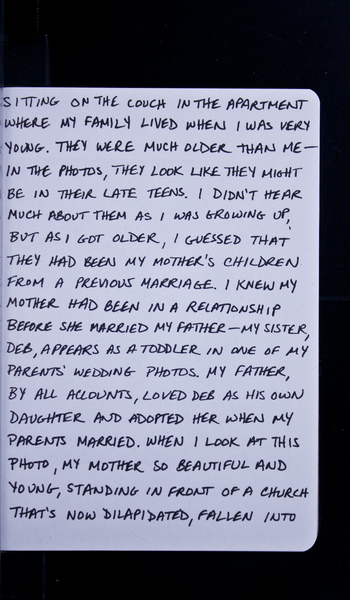 SITTING ON THE COUCH IN THE APARTMENT
WHERE MY FAMILY LIVED WHEN I WAS VERY
YOUNG. THEY WERE MUCH OLDER THAN ME—
IN THE PHOTOS, THEY LOOK LIKE THEY MIGHT
BE IN THEIR LATE TEENS. I DIDN'T HEAR
MUCH ABOUT THEM AS I WAS GROWING UP,
BUT AS I GOT OLDER, I GUESSED THAT
THEY HAD BEEN MY MOTHER'S CHILDREN
FROM A PREVIOUS MARRIAGE. I KNEW MY
MOTHER HAD BEEN IN A RELATIONSHIP
BEFORE SHE MARRIED MY FATHER—MY SISTER,
DEB, APPEARS AS A TODDLER IN ONE OF MY
PARENTS' WEDDING PHOTOS. MY FATHER,
BY ALL ACCOUNTS, LOVED DEB AS HIS OWN
DAUGHTER AND ADOPTED HER WHEN MY
PARENTS MARRIED. WHEN I LOOK AT THIS
PHOTO, MY MOTHER SO BEAUTIFUL AND
YOUNG, STANDING IN FRONT OF A CHURCH
THAT'S NOW DILAPIDATED, FALLEN INTO